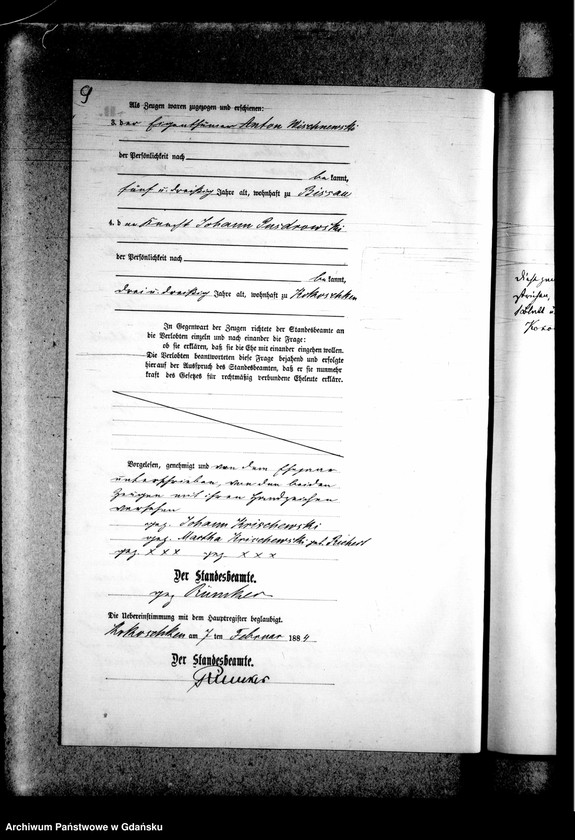 9
Als Zeugen waren zugezogen und erschienen:
3. der Eigenthümer Anton Mischnewski
der Persönlichkeit nach
bekannt,
fünf u dreißig Jahre alt, wohnhaft zu Bissau
4. der Knecht Johann
der Persönlichkeit nach
bekannt,
drei u dreißig Jahre alt, wohnhaft zu Kokoschken
In Gegenwart der Zeugen richtete der Standesbeamte an
die Verlobten einzeln und nach einander die Frage:
ob sie erklären, daß sie die Ehe mit einander eingehen wollen.
Die Verlobten beantworteten diese Frage bejahend und erfolgte
hierauf der Ausspruch des Standesbeamten, daß er sie nunmehr
kraft des Gesetzes für rechtmäßig verbundene Eheleute erkläre.
Vorgelesen, genehmigt und von dem Ehepaar
unterschrieben, von den beiden
Zeugen mit ihren Handzeichen
versehen
gez. Johann Krischewski
gez. Martha Krischewski geb.
gez. x x x gez. x x x
Der Standesbeamte.
gez Rümker
Die Uebereinstimmung mit dem Hauptregister beglaubigt.
Kokoschken am 7 ten Februar 1884
Der Standesbeamte.
Rümker
Diese
Archiwum Państwowe w Gdańsku